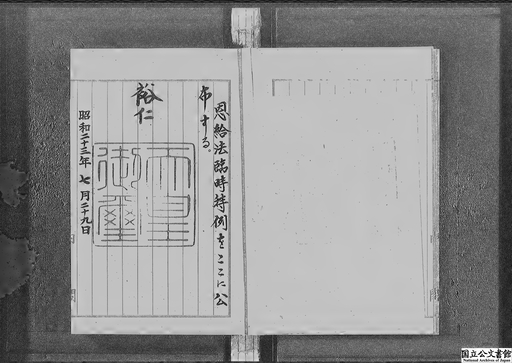 恩給法臨時特例をここに公
布する。
裕仁
天皇
御璽
昭和二十三年七月二十九日
国立公文書館
National Archives of Japan